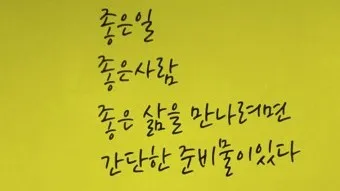 좋은일
좋은사람
좋은 삶을 만나려면
간단한 준비물이있다